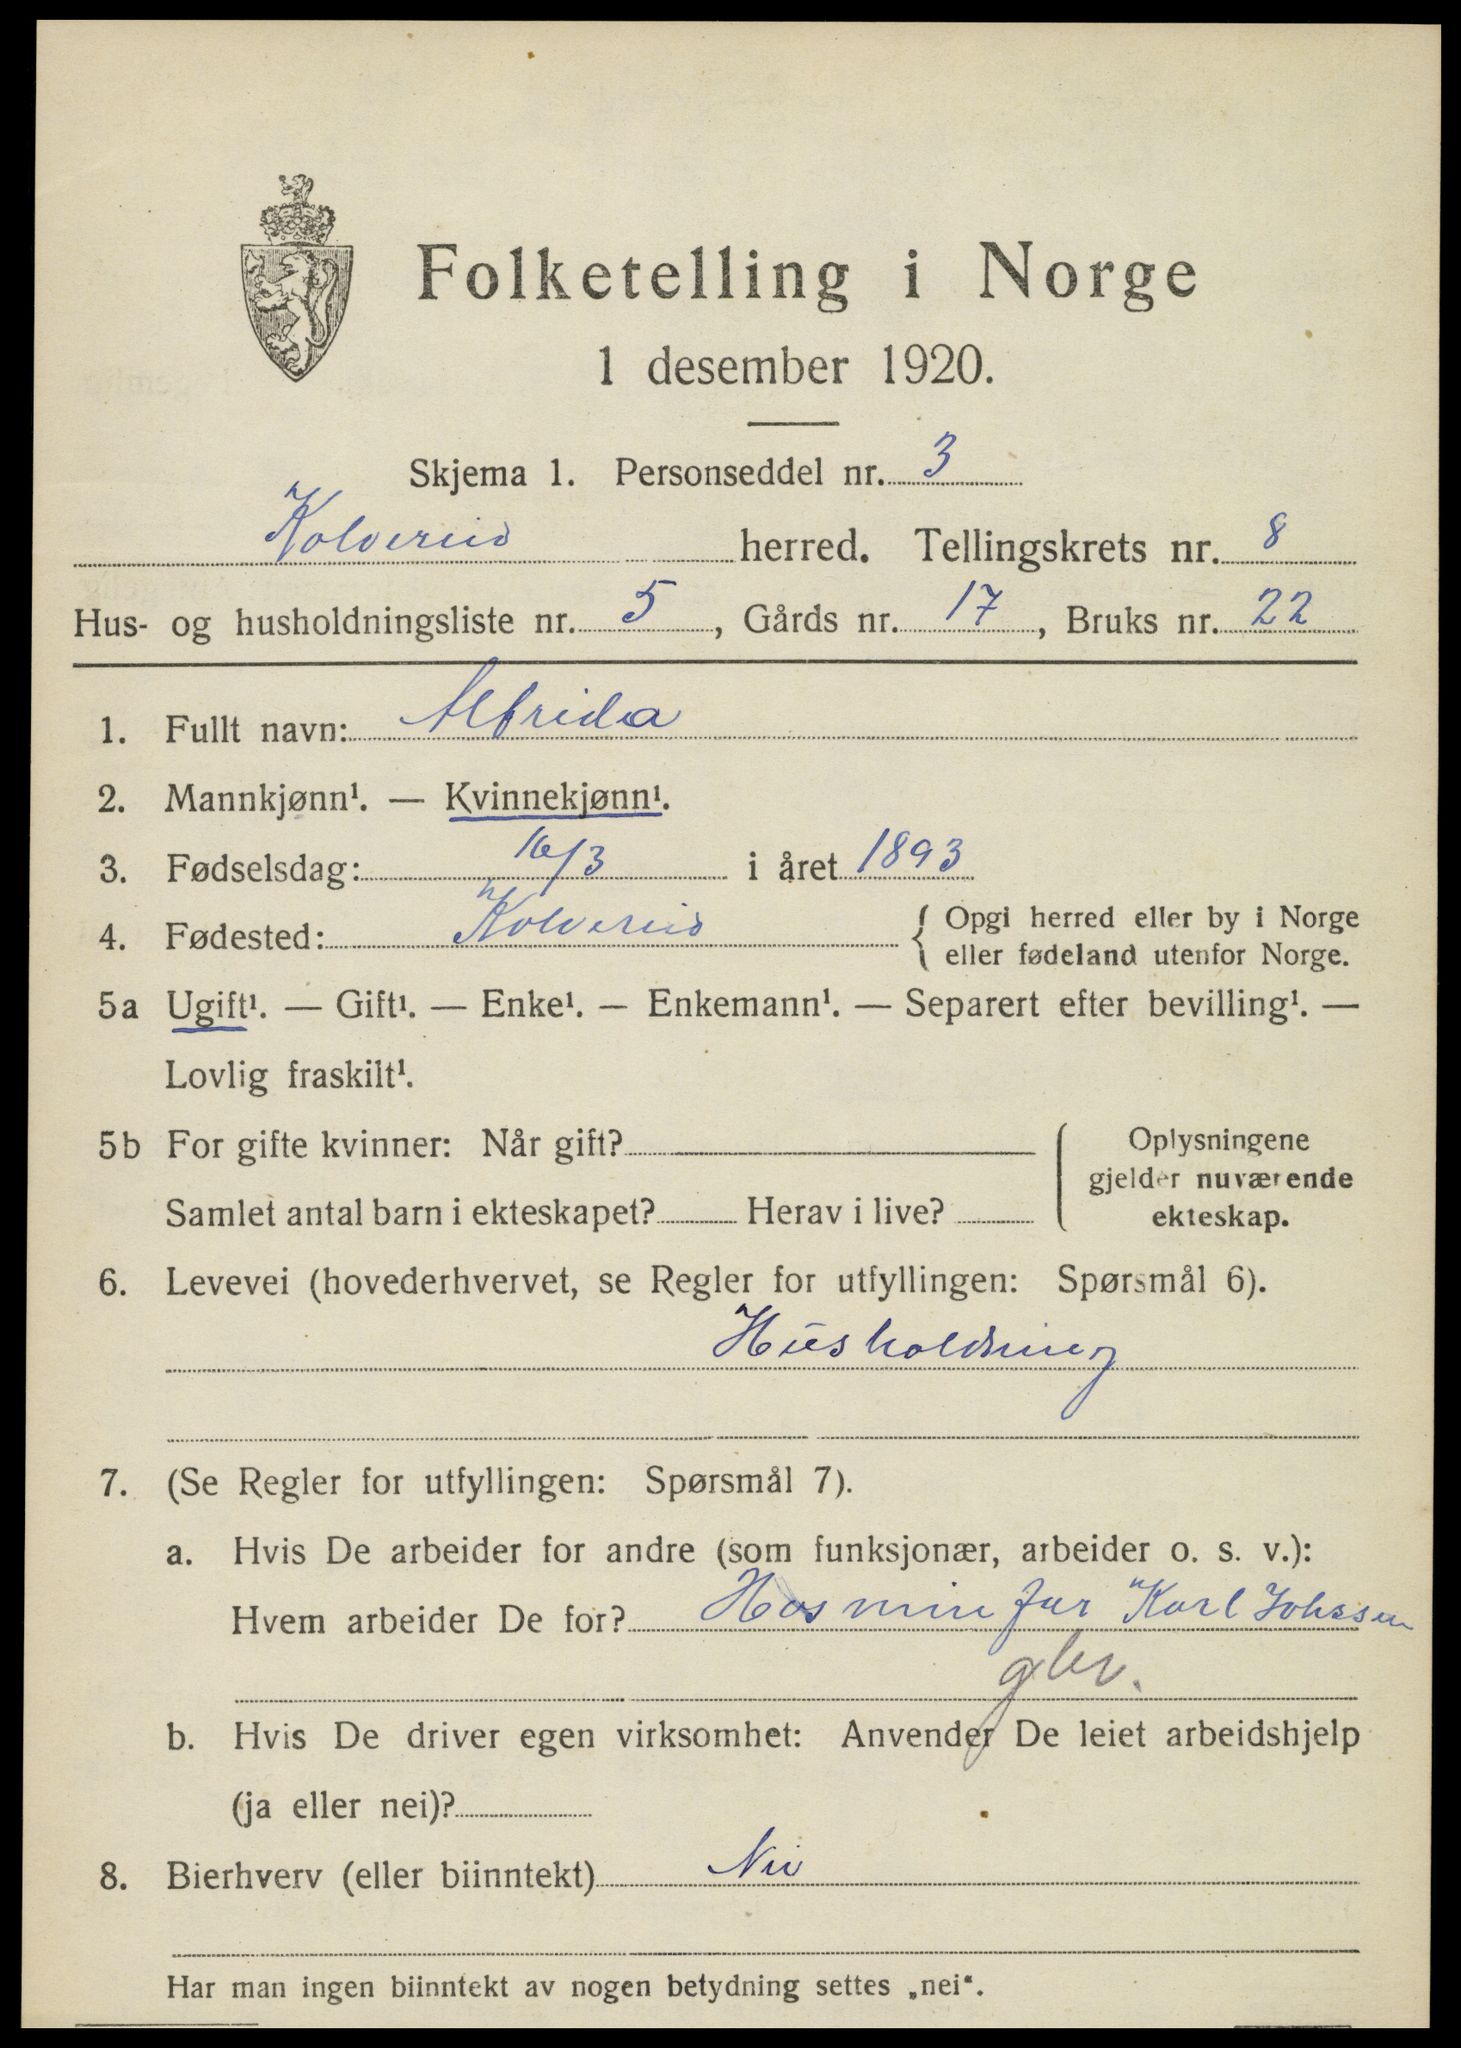 Folketelling i Norge
1 desember 1920.
Skjema 1. Personseddel nr. 3
Kolvereid herred. Tellingskrets nr. 8
Hus- og husholdningsliste nr. 5, Gårds nr. 17, Bruks nr. 22
1. Fullt navn: Alfrida
2. Mannkjønn¹. — Kvinnekjønn¹.
3. Fødselsdag: 16/3 i året 1893
4. Fødested: Kolvereid { Opgi herred eller by i Norge
eller fødeland utenfor Norge.
5a Ugift¹. — Gift¹. — Enke¹. — Enkemann¹. — Separert efter bevilling¹. —
Lovlig fraskilt¹.
5b For gifte kvinner: Når gift?
Samlet antal barn i ekteskapet? Herav i live?
Oplysningene
gjelder nuværende
ekteskap.
6. Levevei (hovederhvervet, se Regler for utfyllingen: Spørsmål 6).
Husholdning
7. (Se Regler for utfyllingen: Spørsmål 7).
a. Hvis De arbeider for andre (som funksjonær, arbeider o. s. v.):
Hvem arbeider De for? Hos min far Karl Johssen
gbr.
b. Hvis De driver egen virksomhet: Anvender De leiet arbeidshjelp
(ja eller nei)?
8. Bierhverv (eller biinntekt) Nei
Har man ingen biinntekt av nogen betydning settes „nei“.